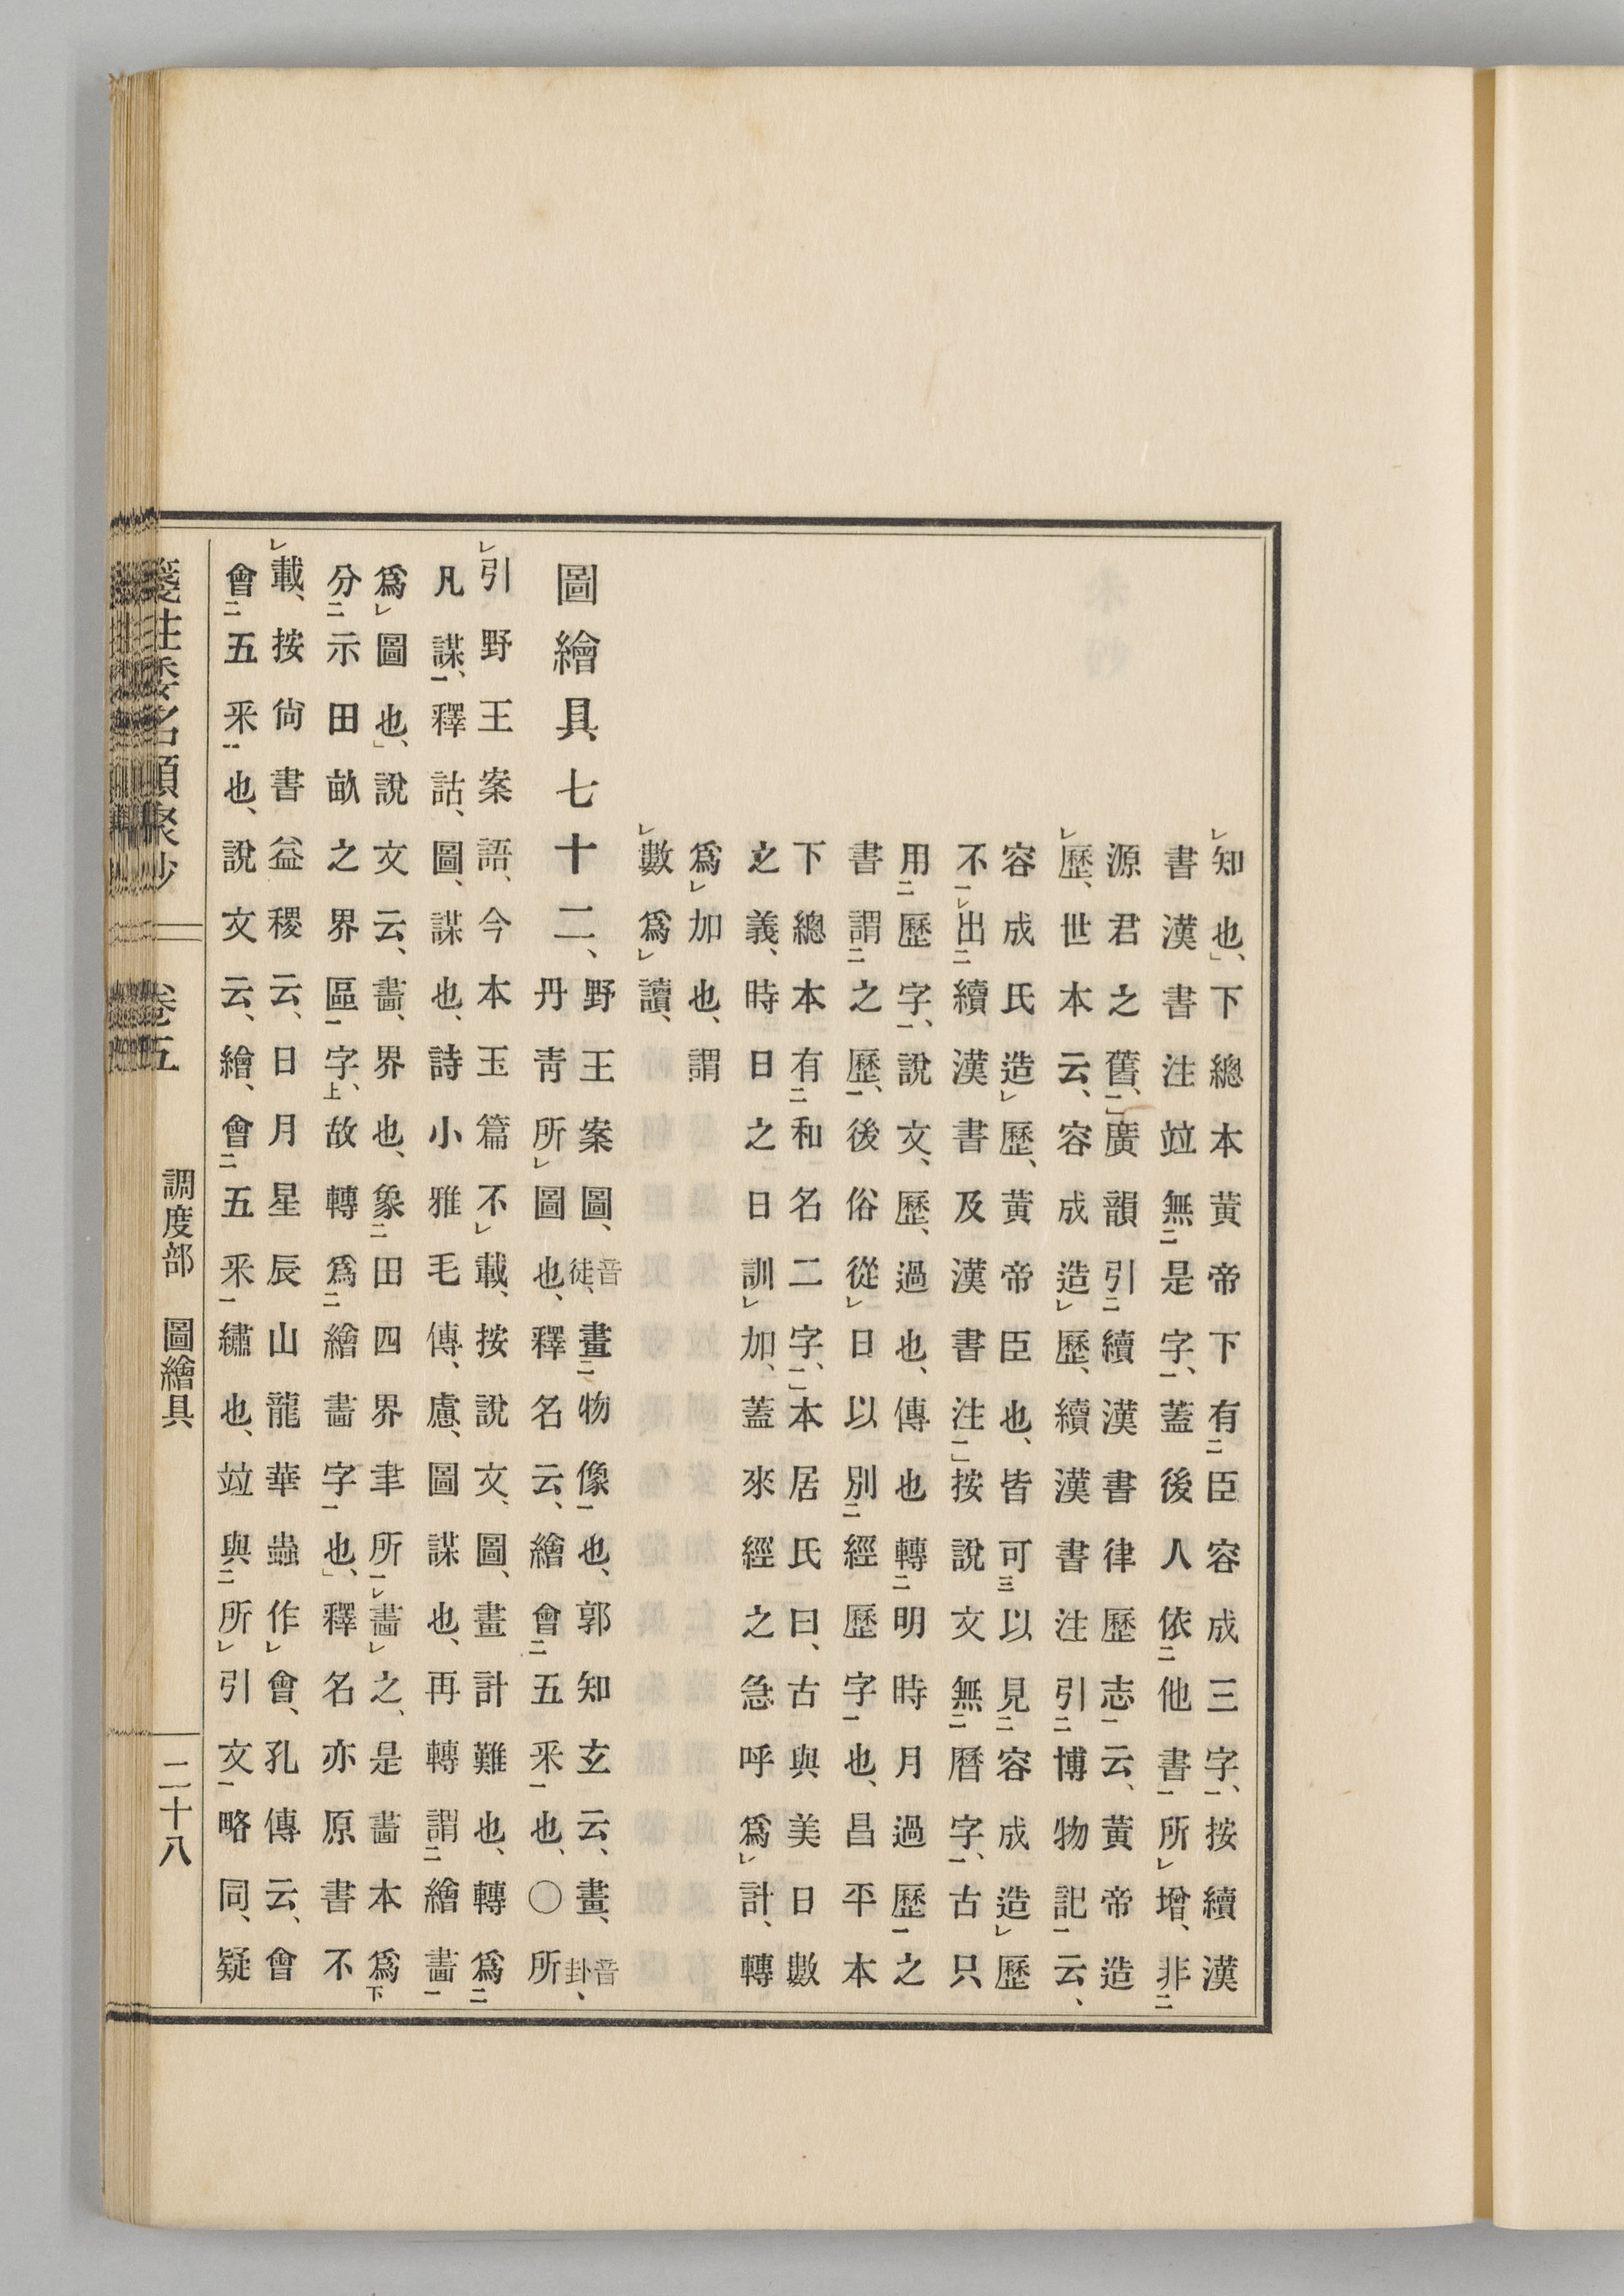 知也、」下總本黃帝下有臣容成三字、按續漢
書漢書注竝無是字、蓋後人依他書所增、非
源君之舊、」廣韻引續漢書律歷志云、黃帝造
歷、世本云、容成造歷、續漢書注引博物記云、
容成氏造歷、黃帝臣也、皆可以見容成造歷
不出續漢書及漢書注」按說文無曆字、古只
用歷字、說文、歷、過也、傳也轉明時月過歷之
書謂之歷、後俗從日以別經歷字也、昌平本
下總本有和名二字、」本居氏曰、古與美日數
之義、時日之日訓加、蓋來經之急呼爲計、轉
爲加也、謂
數爲讀、
圖繪具七十二、
野王案圖、音徒、畫物像也、郭知玄云、畫、音卦、
丹靑所圖也、釋名云、繪會五釆也、〇所
引野王案語、今本玉篇不載、按說文、圖、畫計難也、轉爲
凡謀、釋詁、圖、謀也、詩小雅毛傳、慮、圖謀也、再轉謂繪畫
爲圖也、」說文云、畫、界也、象田四界聿所畫之、是畫本爲
分示田畝之界區字、故轉爲繪畫字也、」釋名亦原書不
載、按尙書益稷云、日月星辰山龍華蟲作會、孔傳云、會
會五釆也、說文云、繪、會五釆繡也、竝與所引文略同、疑
箋注倭名類聚抄 卷五 調度部 圖繪具 二十八